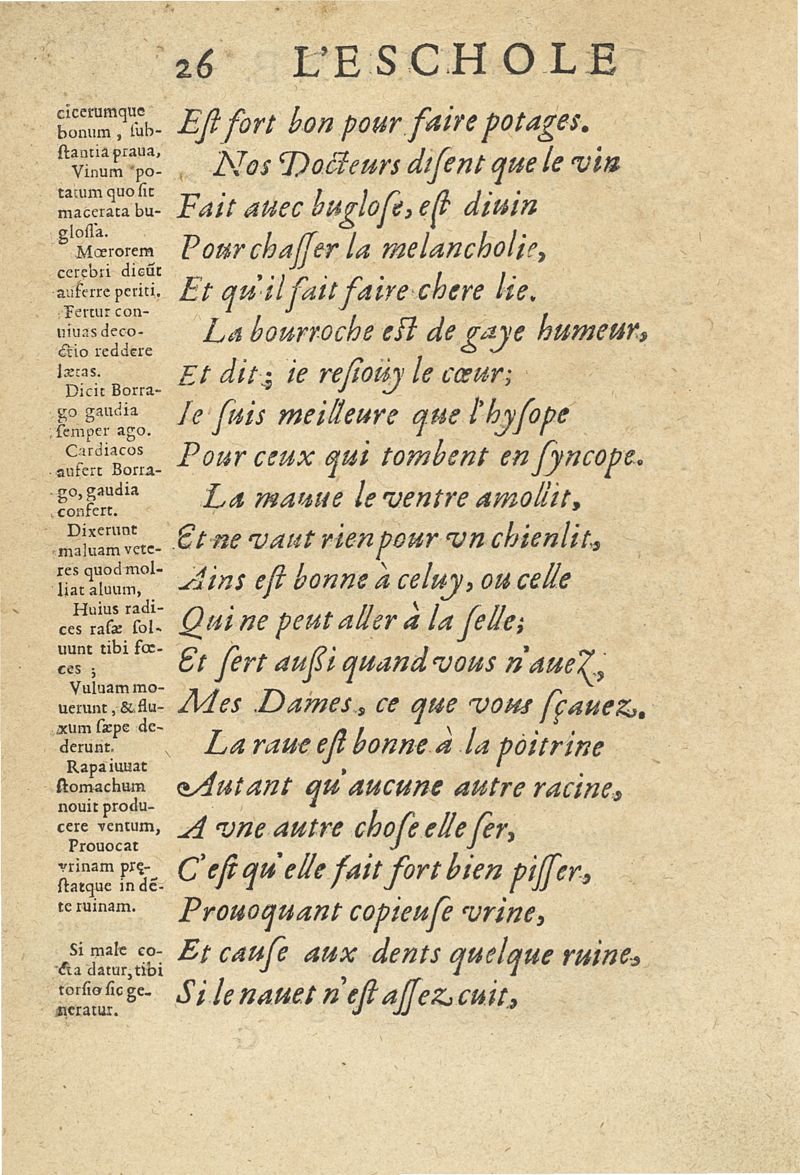 26 L'ESCHOLE
cicerumque
bonum, ſub-
ſtantia praua,
Vinum po-
tatum quo ſit
macerata bu-
gloſſa.
Mœrorem
cerebri dicūt
auferre periti.
Fertur con-
uiuas deco-
ctio reddere
lætas.
Dicit Borra-
go gaudia
ſemper ago.
Cardiacos
aufert Borra-
go, gaudia
confert.
Dixerunt
maluam vete-
res quod mol-
liat aluum,
Huius radi-
ces raſæ ſol-
uunt tibi fœ-
ces ;
Vuluam mo-
uerunt, & flu-
xum ſæpe de-
derunt.
Rapa iuuat
ſtomachum
nouit produ-
cere ventum,
Prouocat
vrinam prę-
ſtatque in dē-
te ruinam.
Si male co-
cta datur, tibi
torſio ſic ge-
neratur.
Eſt fort bon pour faire potages.
Nos Docteurs diſent que le vin
Fait auec bugloſe, eſt diuin
Pour chaſſer la melancholie,
Et qu'il fait faire chere lie.
La bourroche eſt de gaye humeur,
Et dit ; ie reſioüy le cœur;
Ie ſuis meilleure que l'hyſope
Pour ceux qui tombent en ſyncope.
La mauue le ventre amollit,
Et ne vaut rien pour vn chienlit,
Ains eſt bonne à celuy, ou celle
Qui ne peut aller à la ſelle;
Et ſert auſſi quand vous n'auez,
Mes Dames, ce que vous ſçauez.
La raue eſt bonne à la poitrine
Autant qu'aucune autre racine,
A vne autre choſe elle ſer,
C'eſt qu'elle fait fort bien piſſer,
Prouoquant copieuſe vrine,
Et cauſe aux dents quelque ruine,
Si le nauet n'eſt aſſez cuit,